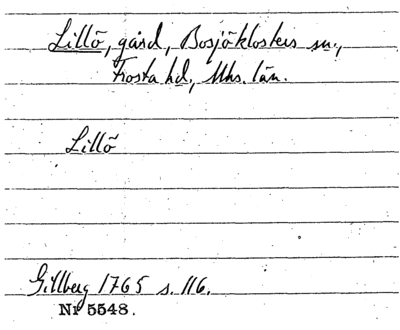 Lillö, gård, Bosjöklosters sn.,
Frosta hd, Mhs. län.
Lillö
Gillberg 1765 s. 116.
Nr 5548.